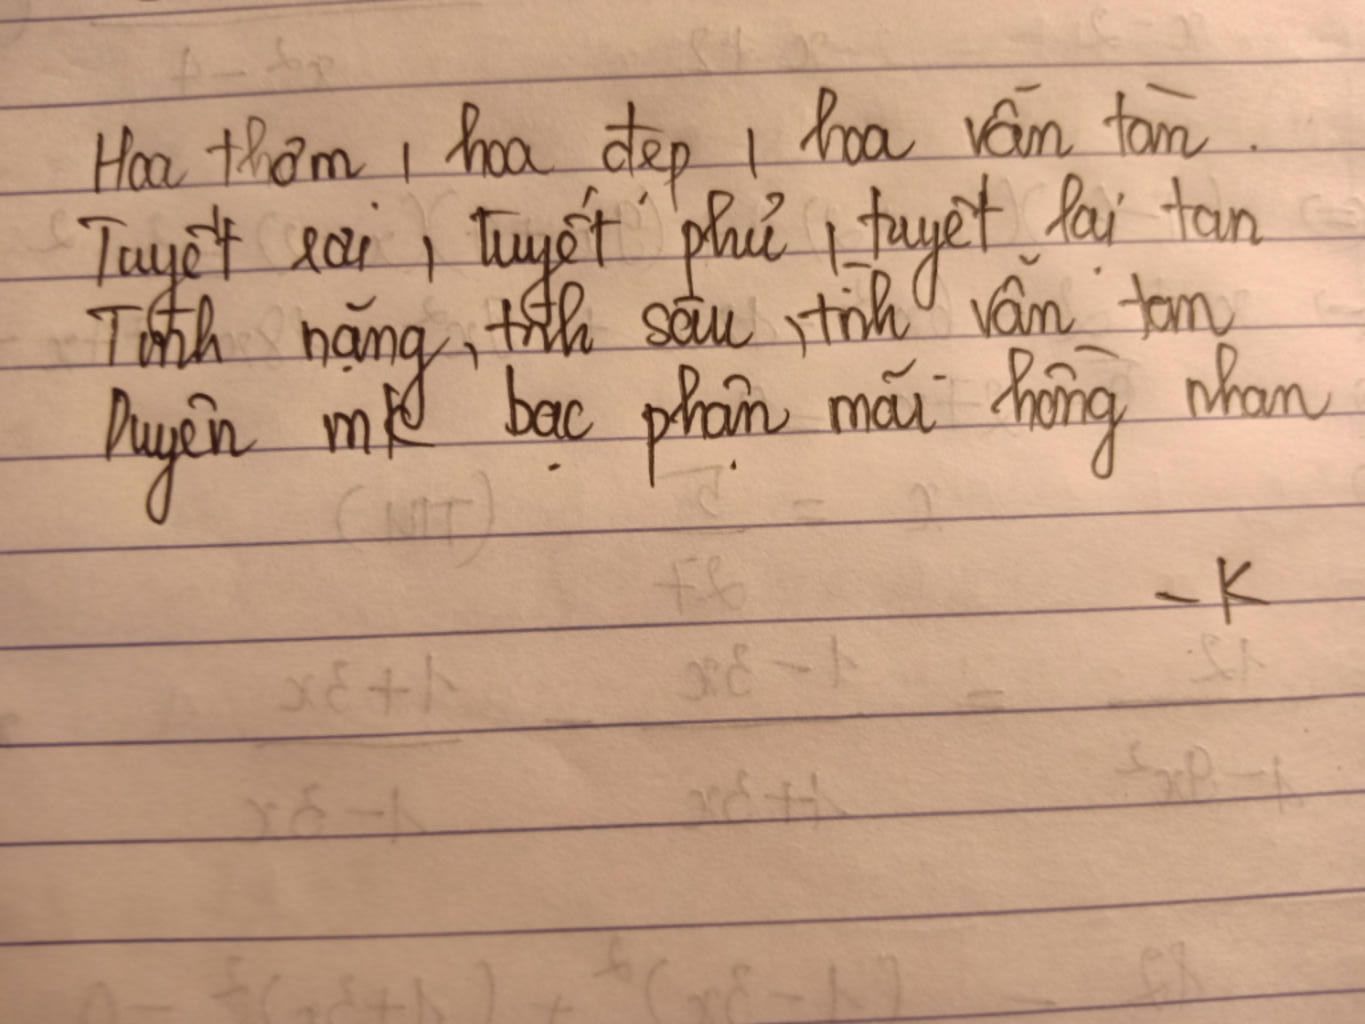 Hoa thơm, hoa đẹp, hoa vẫn tàn.
Tuyết rơi, tuyết phủ, tuyết lại tan
Tình nặng, tình sâu, tình vẫn tan
Duyên bạc phận mãi hồng nhan
-K